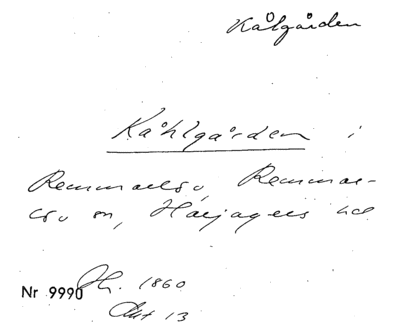 Kålgården
Kåhlgården i
Remmarlöv, Remmar-
löv sn, Harjagers hd
Jb. 1860
Nr 9990
Akt 13